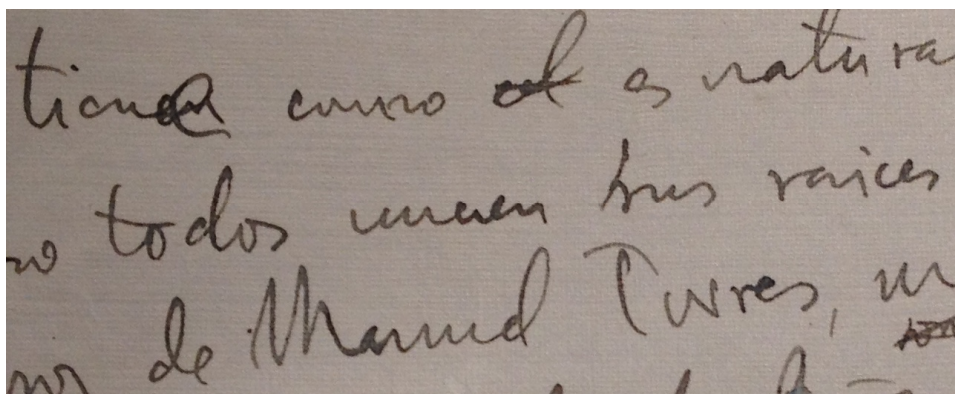 tiene como es natura
no todos unen sus raices
de Manuel Torres, un